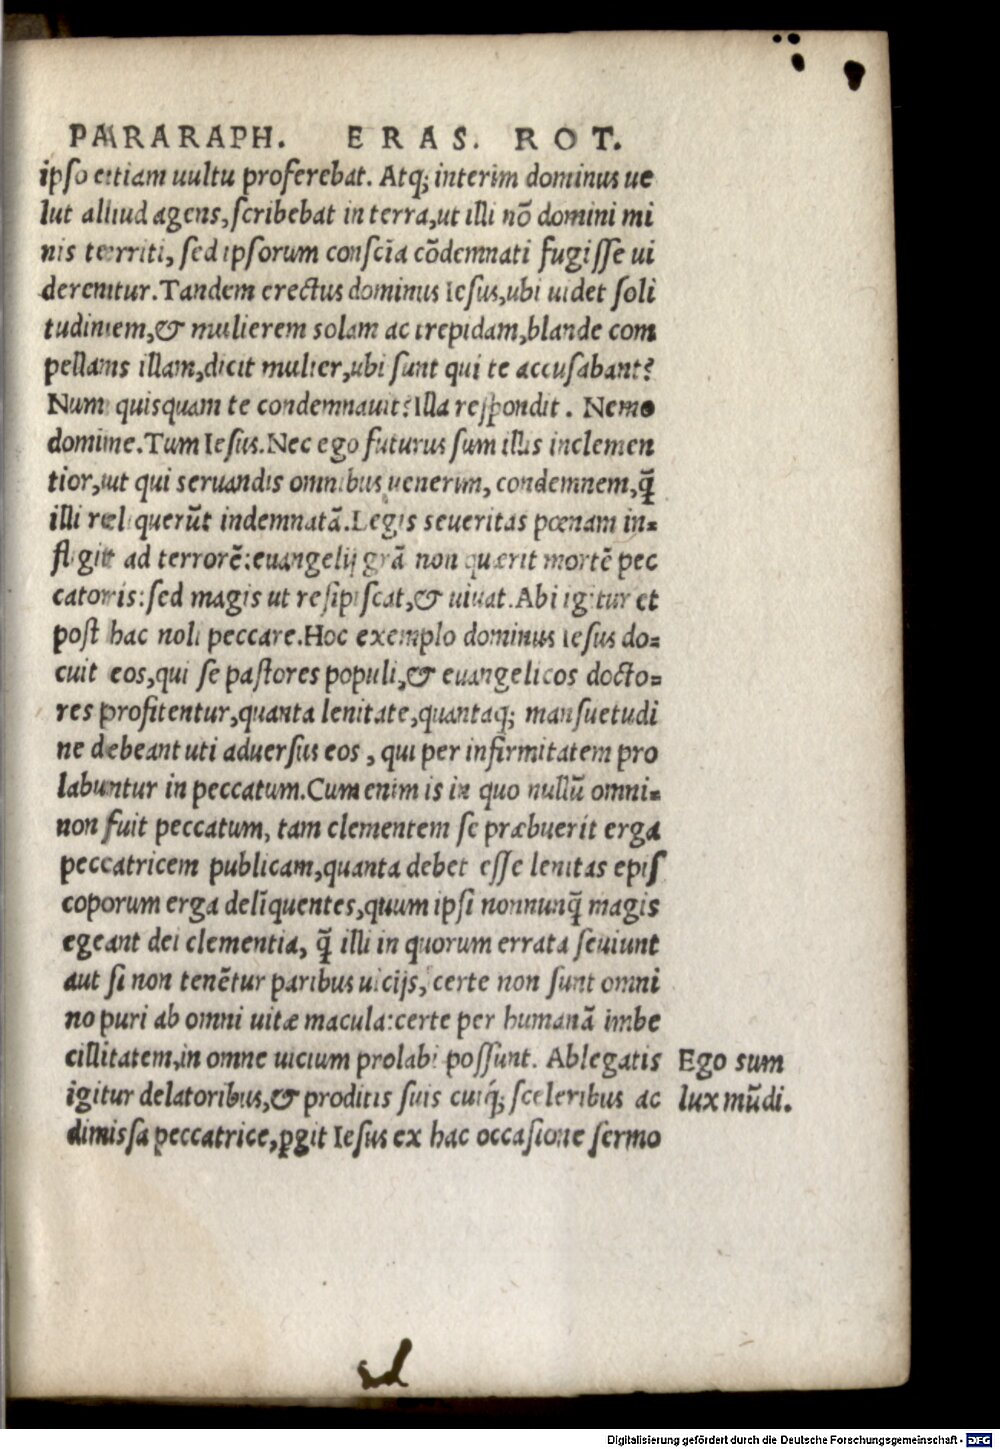 PARARAPH. ERAS. ROT.
ipso etiam uultu proferebat. Atq; interim dominus ue
lut aliud agens, scribebat in terra, ut illi nō domini mi
nis territi, sed ipsorum conscīa cōdemnati fugisse ui
derentur. Tandem erectus dominus Iesus, ubi uidet soli
tudinem, & mulierem solam ac trepidam, blande com
pellans illam, dicit mulier, ubi sunt qui te accusabant?
Num quisquam te condemnauit? Illa respondit. Nemo
domine. Tum Iesus. Nec ego futurus sum illis inclemen
tior, ut qui seruandis omnibus uenerim, condemnem, q̄
illi reliquerūt indemnatā. Legis seueritas pœnam in=
fligit ad terrorē: euangelij grā non quærit mortē pec
catoris: sed magis ut resipiscat, & uiuat. Abi igitur et
post hac noli peccare. Hoc exemplo dominus Iesus do=
cuit eos, qui se pastores populi, & euangelicos docto=
res profitentur, quanta lenitate, quantaq; mansuetudi
ne debeant uti aduersus eos, qui per infirmitatem pro
labuntur in peccatum. Cum enim is in quo nullū omni=
non fuit peccatum, tam clementem se præbuerit erga
peccatricem publicam, quanta debet esse lenitas epis
coporum erga delīquentes, quum ipsi nonnunq̄ magis
egeant dei clementia, q̄ illi in quorum errata seuiunt
aut si non tenētur paribus uicijs, certe non sunt omni
no puri ab omni uitæ macula: certe per humanā imbe
cillitatem, in omne uicium prolabi possunt. Ablegatis
igitur delatoribus, & proditis suis cuiq; sceleribus ac
dimissa peccatrice, ꝑgit Iesus ex hac occasione sermo
Ego sum
lux mūdi.
Digitalisierung gefördert durch die Deutsche Forschungsgemeinschaft - DFG